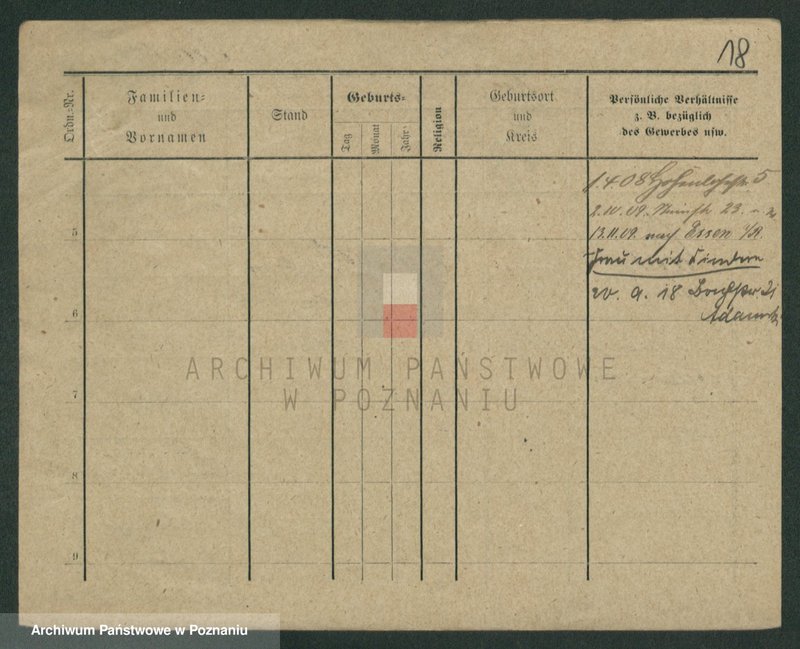 18
Ordn.-Nr.
Familien-
und
Vornamen
Stand
Geburts-
Tag
Monat
Jahr-
Religion
Geburtsort
und
Kreis
Persönliche Verhältnisse
z. B. bezüglich
des Gewerbes usw.
1 4 08 Hohenlohestr. 5
2.10.09. 23.
5
13.11.09. nach Essen /R.
Frau mit Kindern
20. 9. 18 21
6
ARCHIWUM PAŃSTWOWE
W POZNANIU
7
8
9
Archiwum Państwowe w Poznaniu